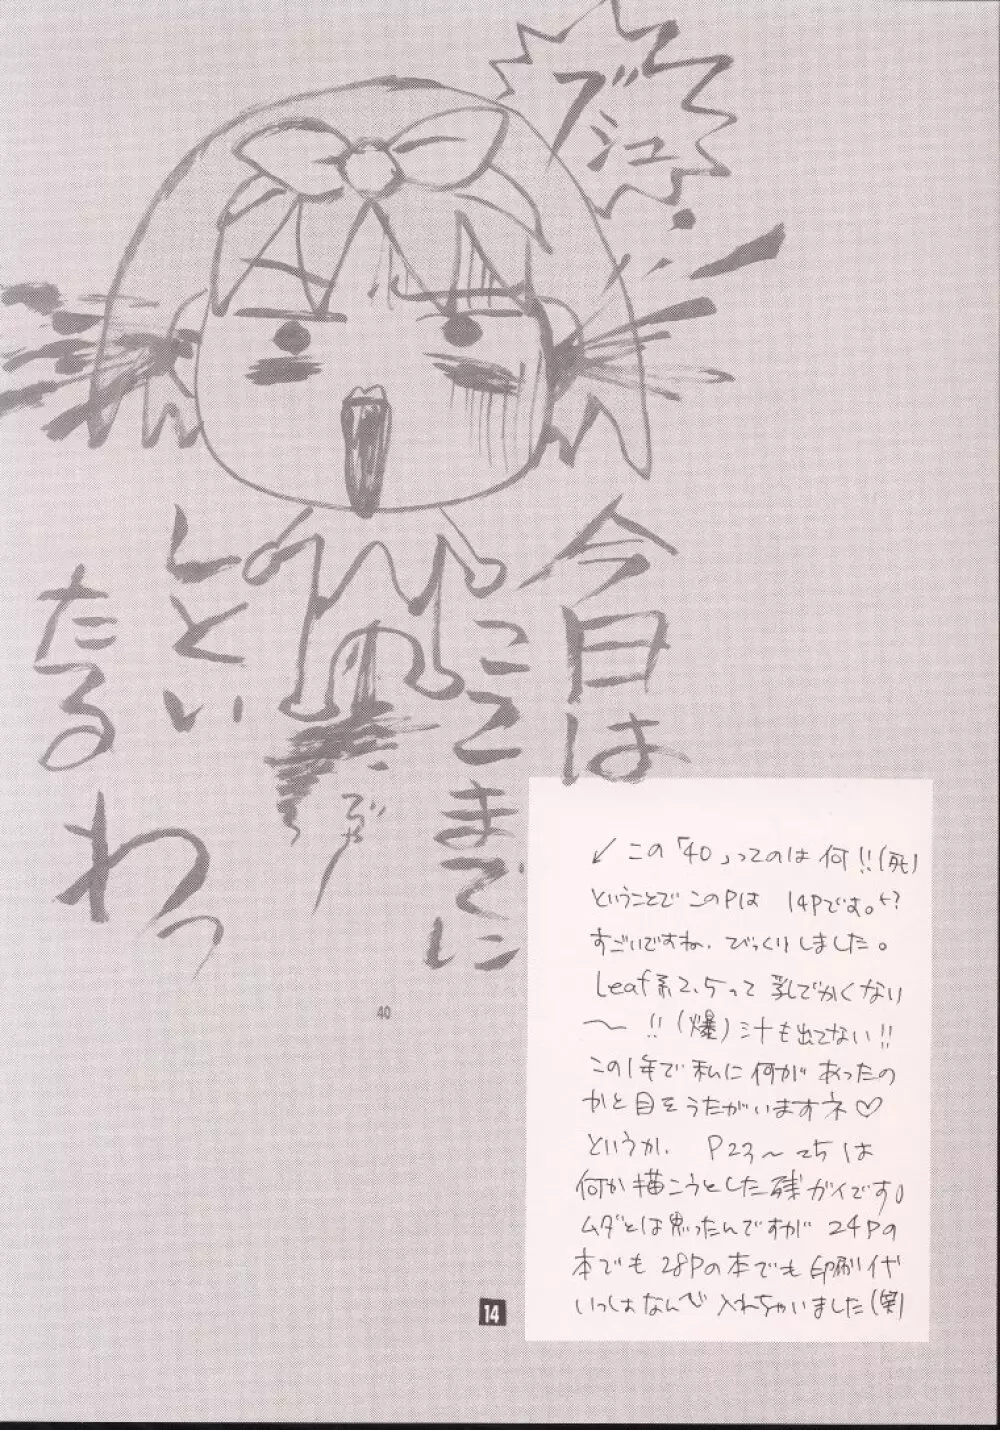 ブシュ
今日は
ここまでに
しとい
たるわっ
40
↙この「40」ってのは何!!(死)
ということでこのPは 14Pです。
すごいですね、びっくりしました。
Leaf系2.5って乳でかくない
〜!!(爆)汁も出てない!!
この1年で私に何があったの
かと目をうたがいますネ♡
というか、P23〜25は
何か描こうとした残ガイです。
ムダとは思ったんですが24Pの
本でも28Pの本でも印刷代
いっしょなんで入れちゃいました(笑)
14